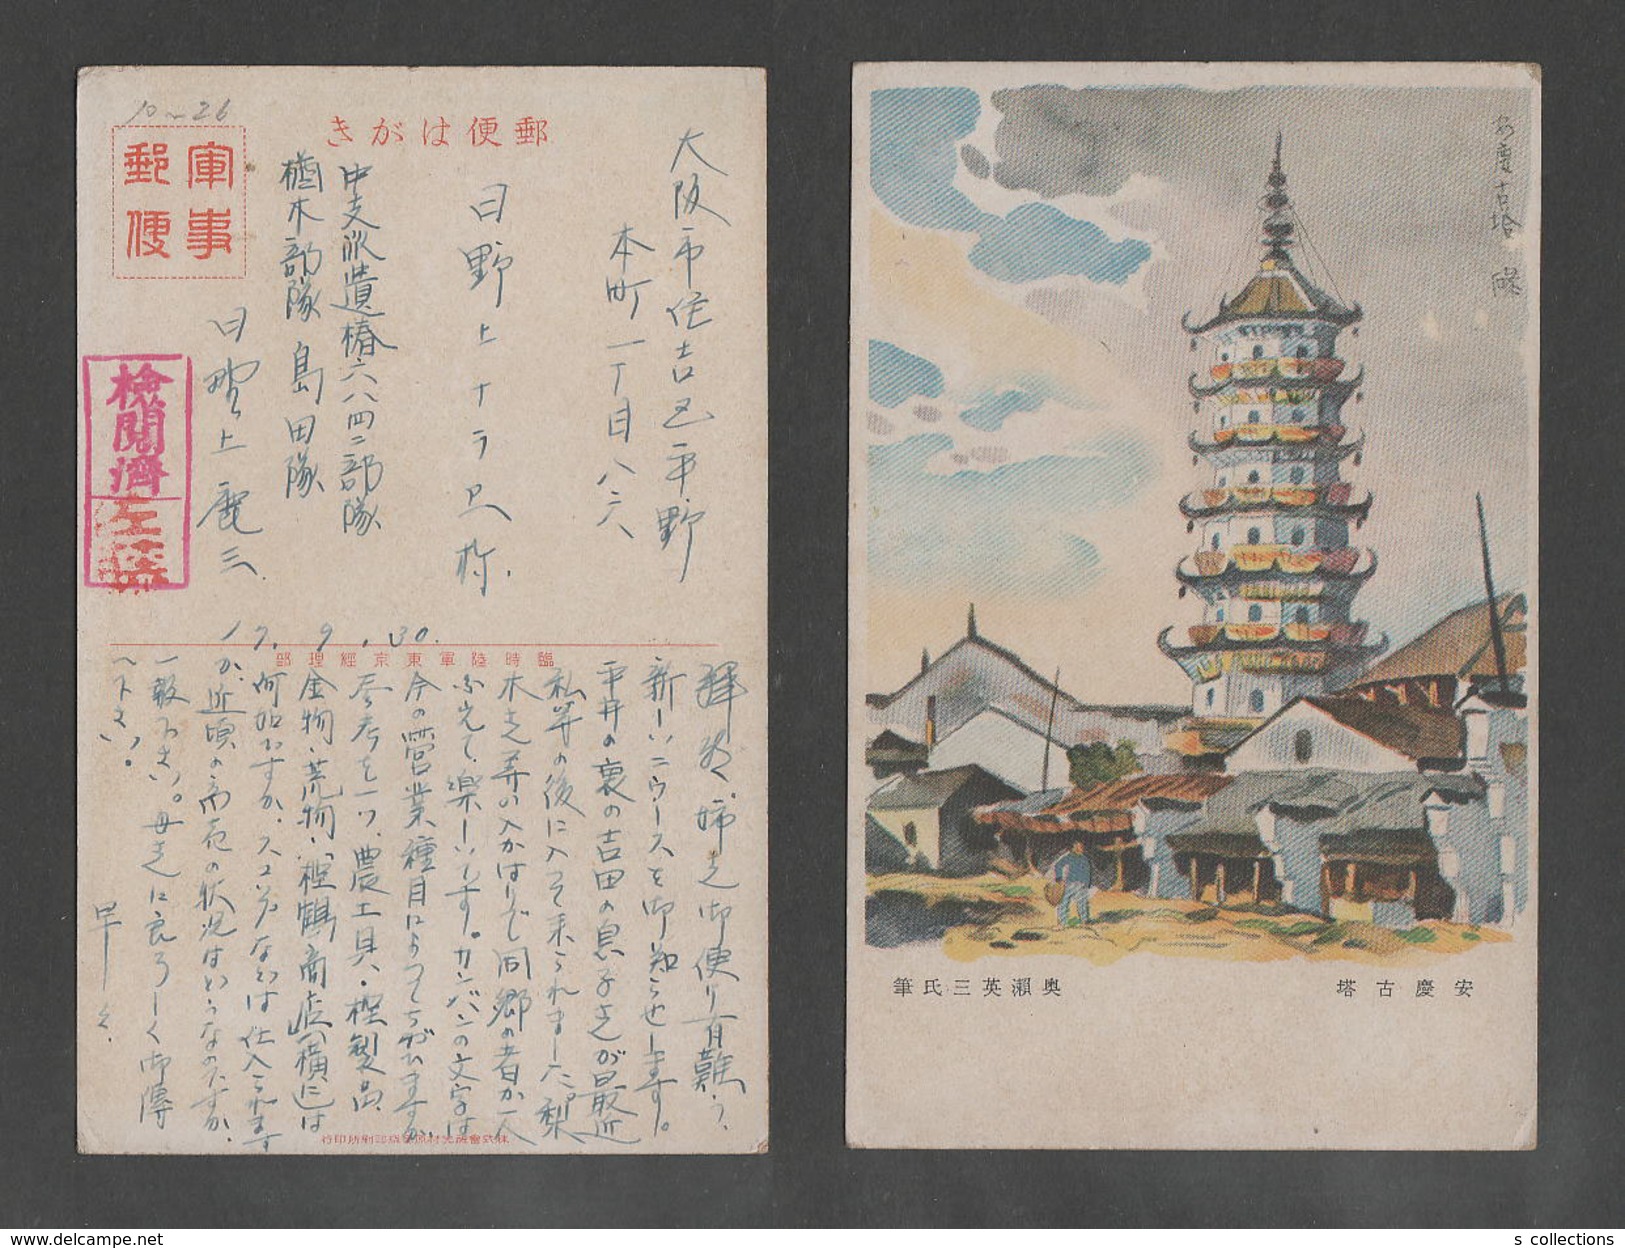 10~26
郵便はがき
軍事
郵便
大阪市住吉区平野
本町一丁目八二八
日野上ナラヱ 様.
中支派遣椿六八四二部隊
楢木部隊 島田隊
日野上 鹿三.
検閲濟
17. 9. 30.
臨時陸軍東京經理部
拝啓、姉さん御便り有難う、
新しいニウースを御知らせします。
平井の裏の吉田の息子さんが最近
私等の後に入って来られました。梨
木さん弄い入かはりで同郷の者が一人
ふえて、楽しいです。カンバンの文字は
今の営業種目によってちがひますが
参考を一つ、農工具・樫製品
金物・荒物・樫鶴商店(横に)は
何如ですか、スコップなどは仕入られます
か、近頃の商売の状況はどうなのですか、
一報下さい。母さんに良ろしく御傳
へ下さい。
早々.
安慶古塔
安慶古塔
奥瀬英三氏筆
s collections